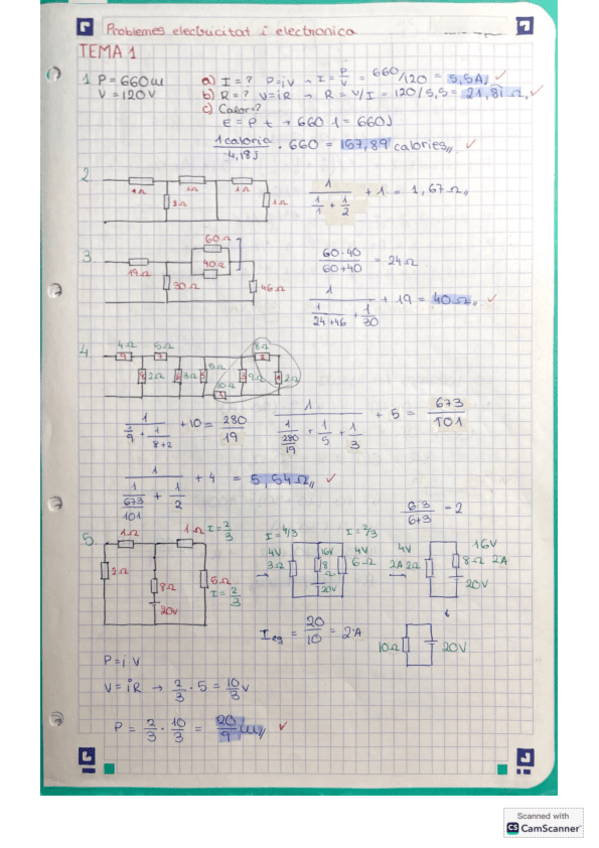 Problemes electricitat i electronica
TEMA 1
1. P = 660 W a) I = ? P = i·V → I = P/V = 660/120 = 5,5 A ✓
V = 120 V b) R = ? V = iR → R = V/I = 120/5,5 = 21,81 Ω ✓
c) Calor = ?
E = P t → 660·1 = 660 J
1 caloria / 4,18 J · 660 = 157,89 calories ✓
2.
1Ω 1Ω 1Ω
1Ω
1 / (1/1 + 1/2) + 1 = 1,67 Ω
3.
60Ω
40Ω
19Ω 30Ω 46Ω
60·40 / 60+40 = 24 Ω
1 / (1/24+46 + 1/30) + 19 = 40 Ω ✓
4.
4Ω 5Ω 8Ω
2Ω 3Ω 5Ω 9Ω 2Ω
10Ω
1 / (1/9 + 1/8+2) + 10 = 280/19
1 / (1/(280/19) + 1/5 + 1/3) + 5 = 673/101
1 / (1/(673/101) + 1/2) + 4 = 5,54 Ω ✓
6·3 / 6+3 = 2
5.
1Ω 1Ω I = 2/3
2Ω 8Ω 5Ω
20V I = 2/3
→
I = 4/3 I = 2/3
4V 16V 4V
3Ω 8Ω 6Ω
20V
→
4V 16V
2A 2Ω 8Ω 2A
20V
I eq = 20/10 = 2 A
10Ω 20V
P = i·V
V = iR → 2/3 · 5 = 10/3 V
P = 2/3 · 10/3 = 20/9 W ✓
Scanned with
CS CamScanner